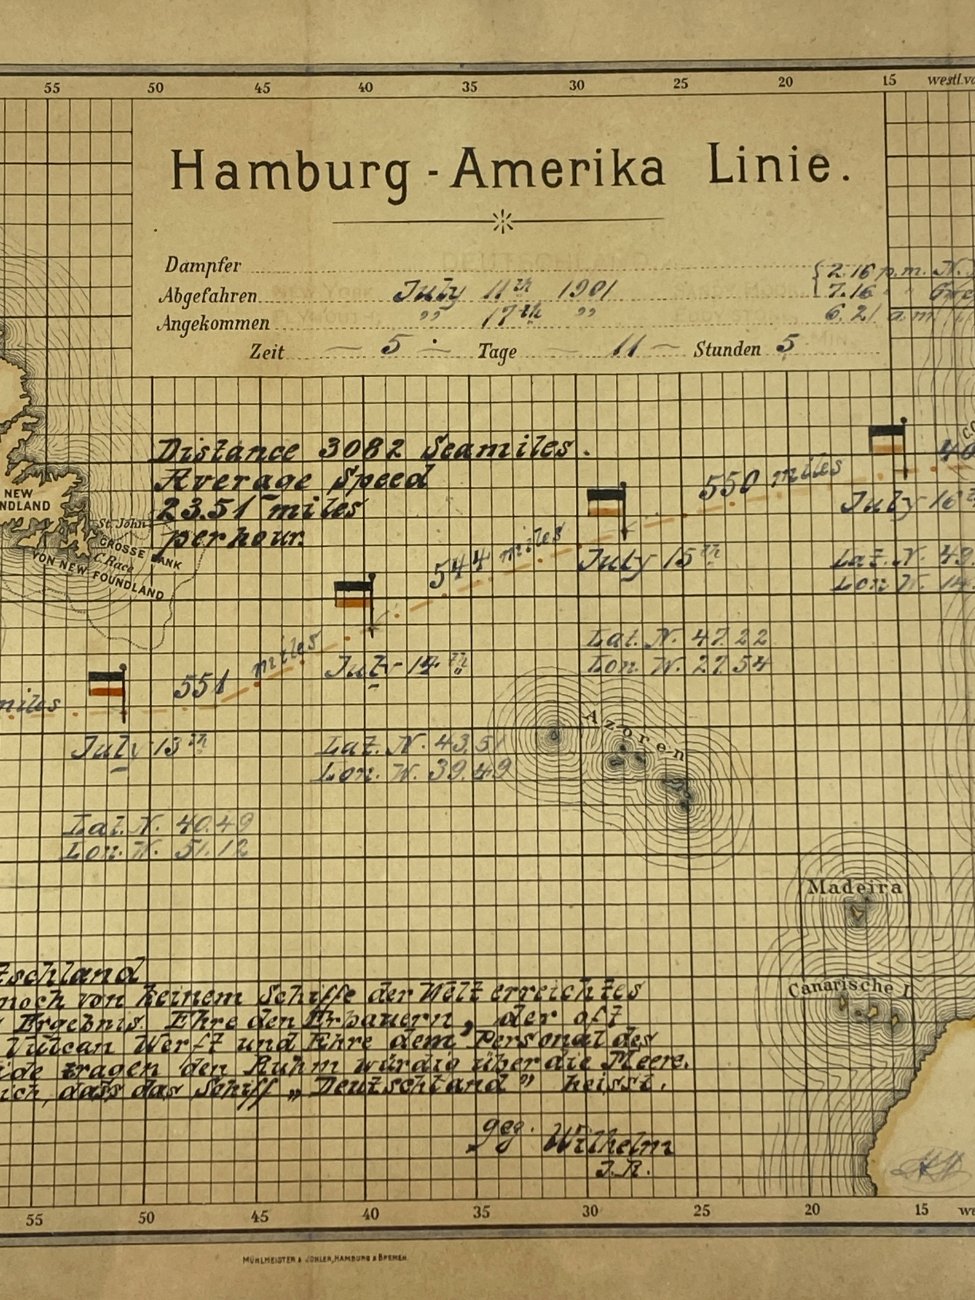 55 50 45 40 35 30 25 20 15 westl. v
Hamburg - Amerika Linie.
Dampfer { 2.16 p.m. N.
Abgefahren July 11th 1901 7.16 " "
Angekommen " 17th " 6.21 a.m.
Zeit 5 Tage 11 Stunden 5
Distance 3082 Seamiles.
Average Speed
23.51 miles
per hour.
NEW
NDLAND
St. John
GROSSE BANK
C. Race
VON NEW FOUNDLAND
miles
551 miles
544 miles
550 miles
July 16
Lat. N. 49.
Lon. W. 14
July 15th
Lat. N. 47.22
Lon. W. 27.54
July 14th
Lat. N. 43.51
Lon. W. 39.49
July 13th
Lat. N. 40.49
Lon. W. 51.12
Azoren
Madeira
Canarische I.
tschland
noch von keinem Schiffe der Welt erreichtes
Ergebnis. Ehre den Erbauern, der oft
Vulcan Werft und Ehre dem Personal des
ide tragen den Ruhm würdig über die Meere.
ich, dass das Schiff „Deutschland" heisst.
gez. Wilhelm
I.R.
55 50 45 40 35 30 25 20 15 we
MÜHLMEISTER & JOHLER, HAMBURG & BREMEN.